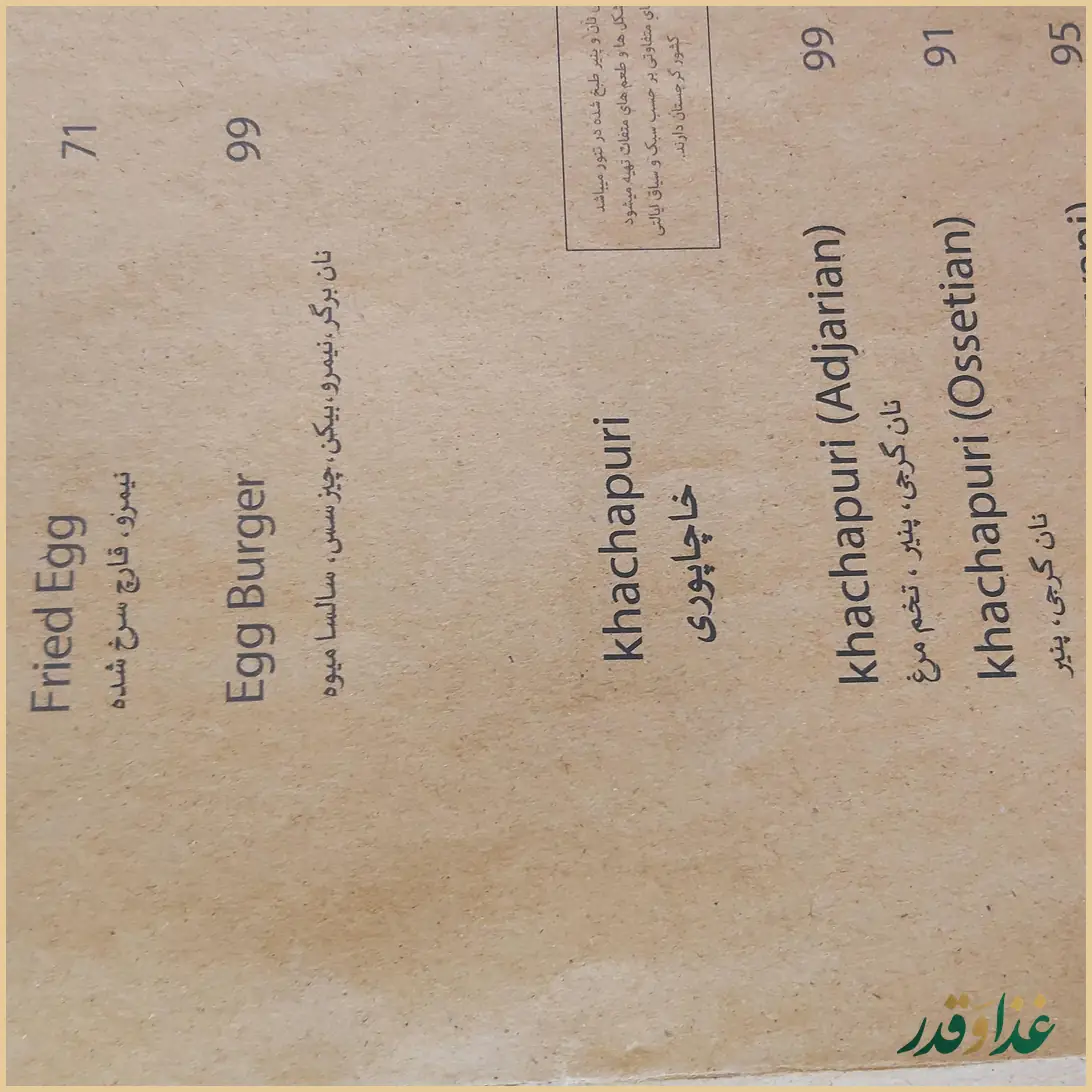 Fried Egg 71
نیمرو، قارچ سرخ شده
Egg Burger 99
نان برگر،نیمرو،بیکن،چیز سس، سالسا میوه
khachapuri
خاچاپوری
نان و پنیر طبخ شده در تنور میباشد
شکل ها و طعم های متفات تهیه میشود
متفاوتی بر حسب سبک و سیاق ایالتی
کشور گرجستان دارند.
khachapuri (Adjarian) 99
نان گرجی، پنیر ، تخم مرغ
khachapuri (Ossetian) 91
نان گرجی، پنیر
95
غذا و قدر